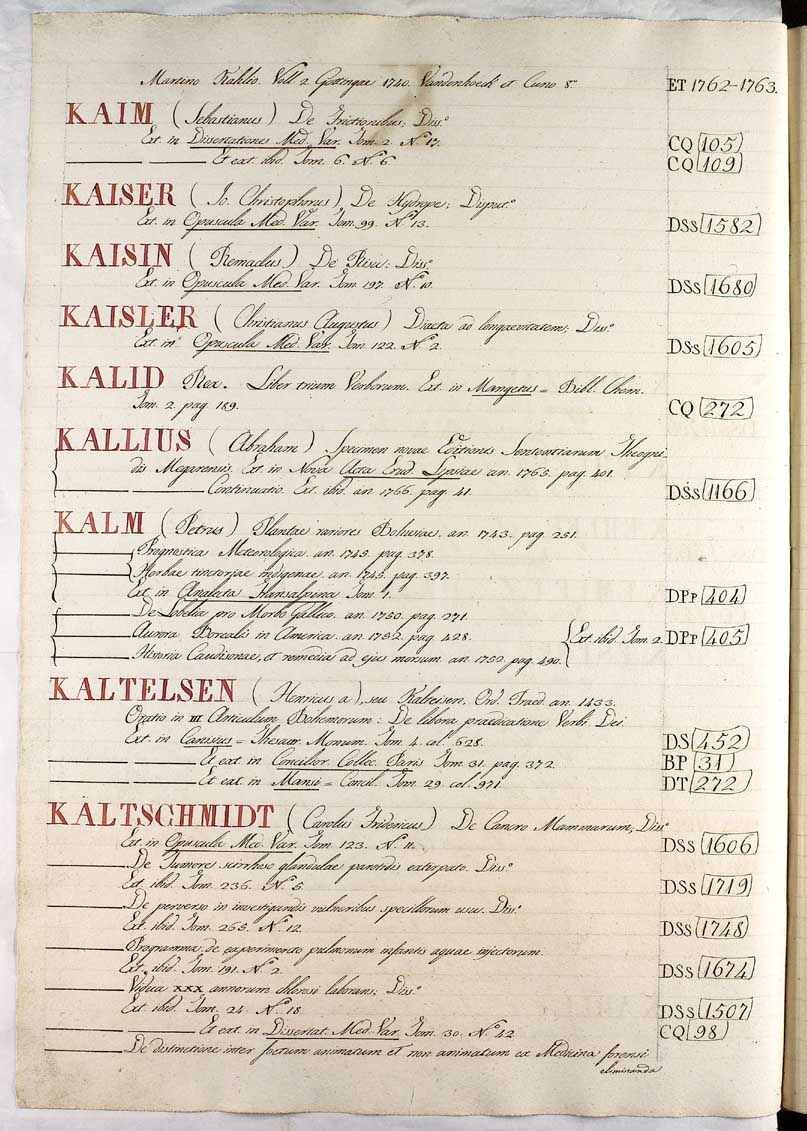 Martino Kahlio. Voll 2. Gottingae 1740. Vandenhoeck et Cuno 8.° ET 1762-1763.
KAIM (Sebastianus) De Frictionibus; Diss.°
Ext. in Dissertationes Med. Var. Tom. 2. N.° 17. CQ 105
Et ext. ibid. Tom. 6. N.° 6. CQ 109
KAISER (Io. Christophorus) De Hydrope; Disput.°
Ext. in Opuscula Med. Var. Tom. 99. N.° 13. DSs 1582
KAISIN (Remaclus) De Risu; Diss.°
Ext. in Opuscula Med. Var. Tom. 197. N.° 10. DSs 1680
KAISLER (Christianus Augustus) Diaeta ad longaevitatem; Diss.°
Ext. in Opuscula Med. Var. Tom. 122. N.° 2. DSs 1605
KALID Rex. Liber trium Verborum. Ext. in Mangetus = Bibl. Chem.
Tom. 2. pag. 189. CQ 272
KALLIUS (Abraham) Specimen novae Editionis Sententiarum Theogni
dis Megarensis. Ext. in Nova Acta Erud. Lipsiae an. 1765. pag. 401.
Continuatio. Ext. ibid. an. 1766. pag. 41. DSs 1166
KALM (Petrus) Plantae rariores Bohusiae. an. 1743. pag. 251.
Prognostica Meteorologica. an. 1745. pag. 378.
Herbae tinctoriae indigenae. an. 1745. pag. 397.
Ext. in Analecta Transalpina Tom. 1. DPp 404
De Lobelia pro Morbo Gallico. an. 1750. pag. 271.
Aurora Borealis in America. an. 1752. pag. 428. Ext. ibid. Tom. 2. DPp 405
Historia Caudisonae, et remedia ad ejus morsum. an. 1752. pag. 490.
KALTELSEN (Henricus a), seu Kalteisen, Ord. Praed. an. 1433.
Oratio in III Articulum Bohemorum: De libera praedicatione Verbi Dei
Ext. in Canisius = Thesaur. Monum. Tom. 4. col. 628. DS 452
Et ext. in Concilior. Collec. Paris Tom. 31. pag. 372. BP 31
Et ext. in Mansi = Concil. Tom. 29. col. 971. DT 272
KALTSCHMIDT (Carolus Fridericus) De Cancro Mammarum; Diss.°
Ext. in Opuscula Med. Var. Tom. 123. N.° 11. DSs 1606
De Tumore scirrhoso glandulae parotidis extirpato. Diss.°
Ext. ibid. Tom. 236. N.° 5. DSs 1719
De perverso in investigandis vulneribus specillorum usu. Diss.°
Ext. ibid. Tom. 265. N.° 12. DSs 1748
Programma de experimento pulmonum infantis aquae injectorum.
Ext. ibid. Tom. 191. N.° 2. DSs 1674
Vidua XXX annorum chlorosi laborans; Diss.°
Ext. ibid. Tom. 24. N.° 18. DSs 1507
Et ext. in Dissertat. Med. Var. Tom. 30. N.° 42 CQ 98
De distinctione inter foetum animatum et non animatum ex Medicina forensi
eliminanda